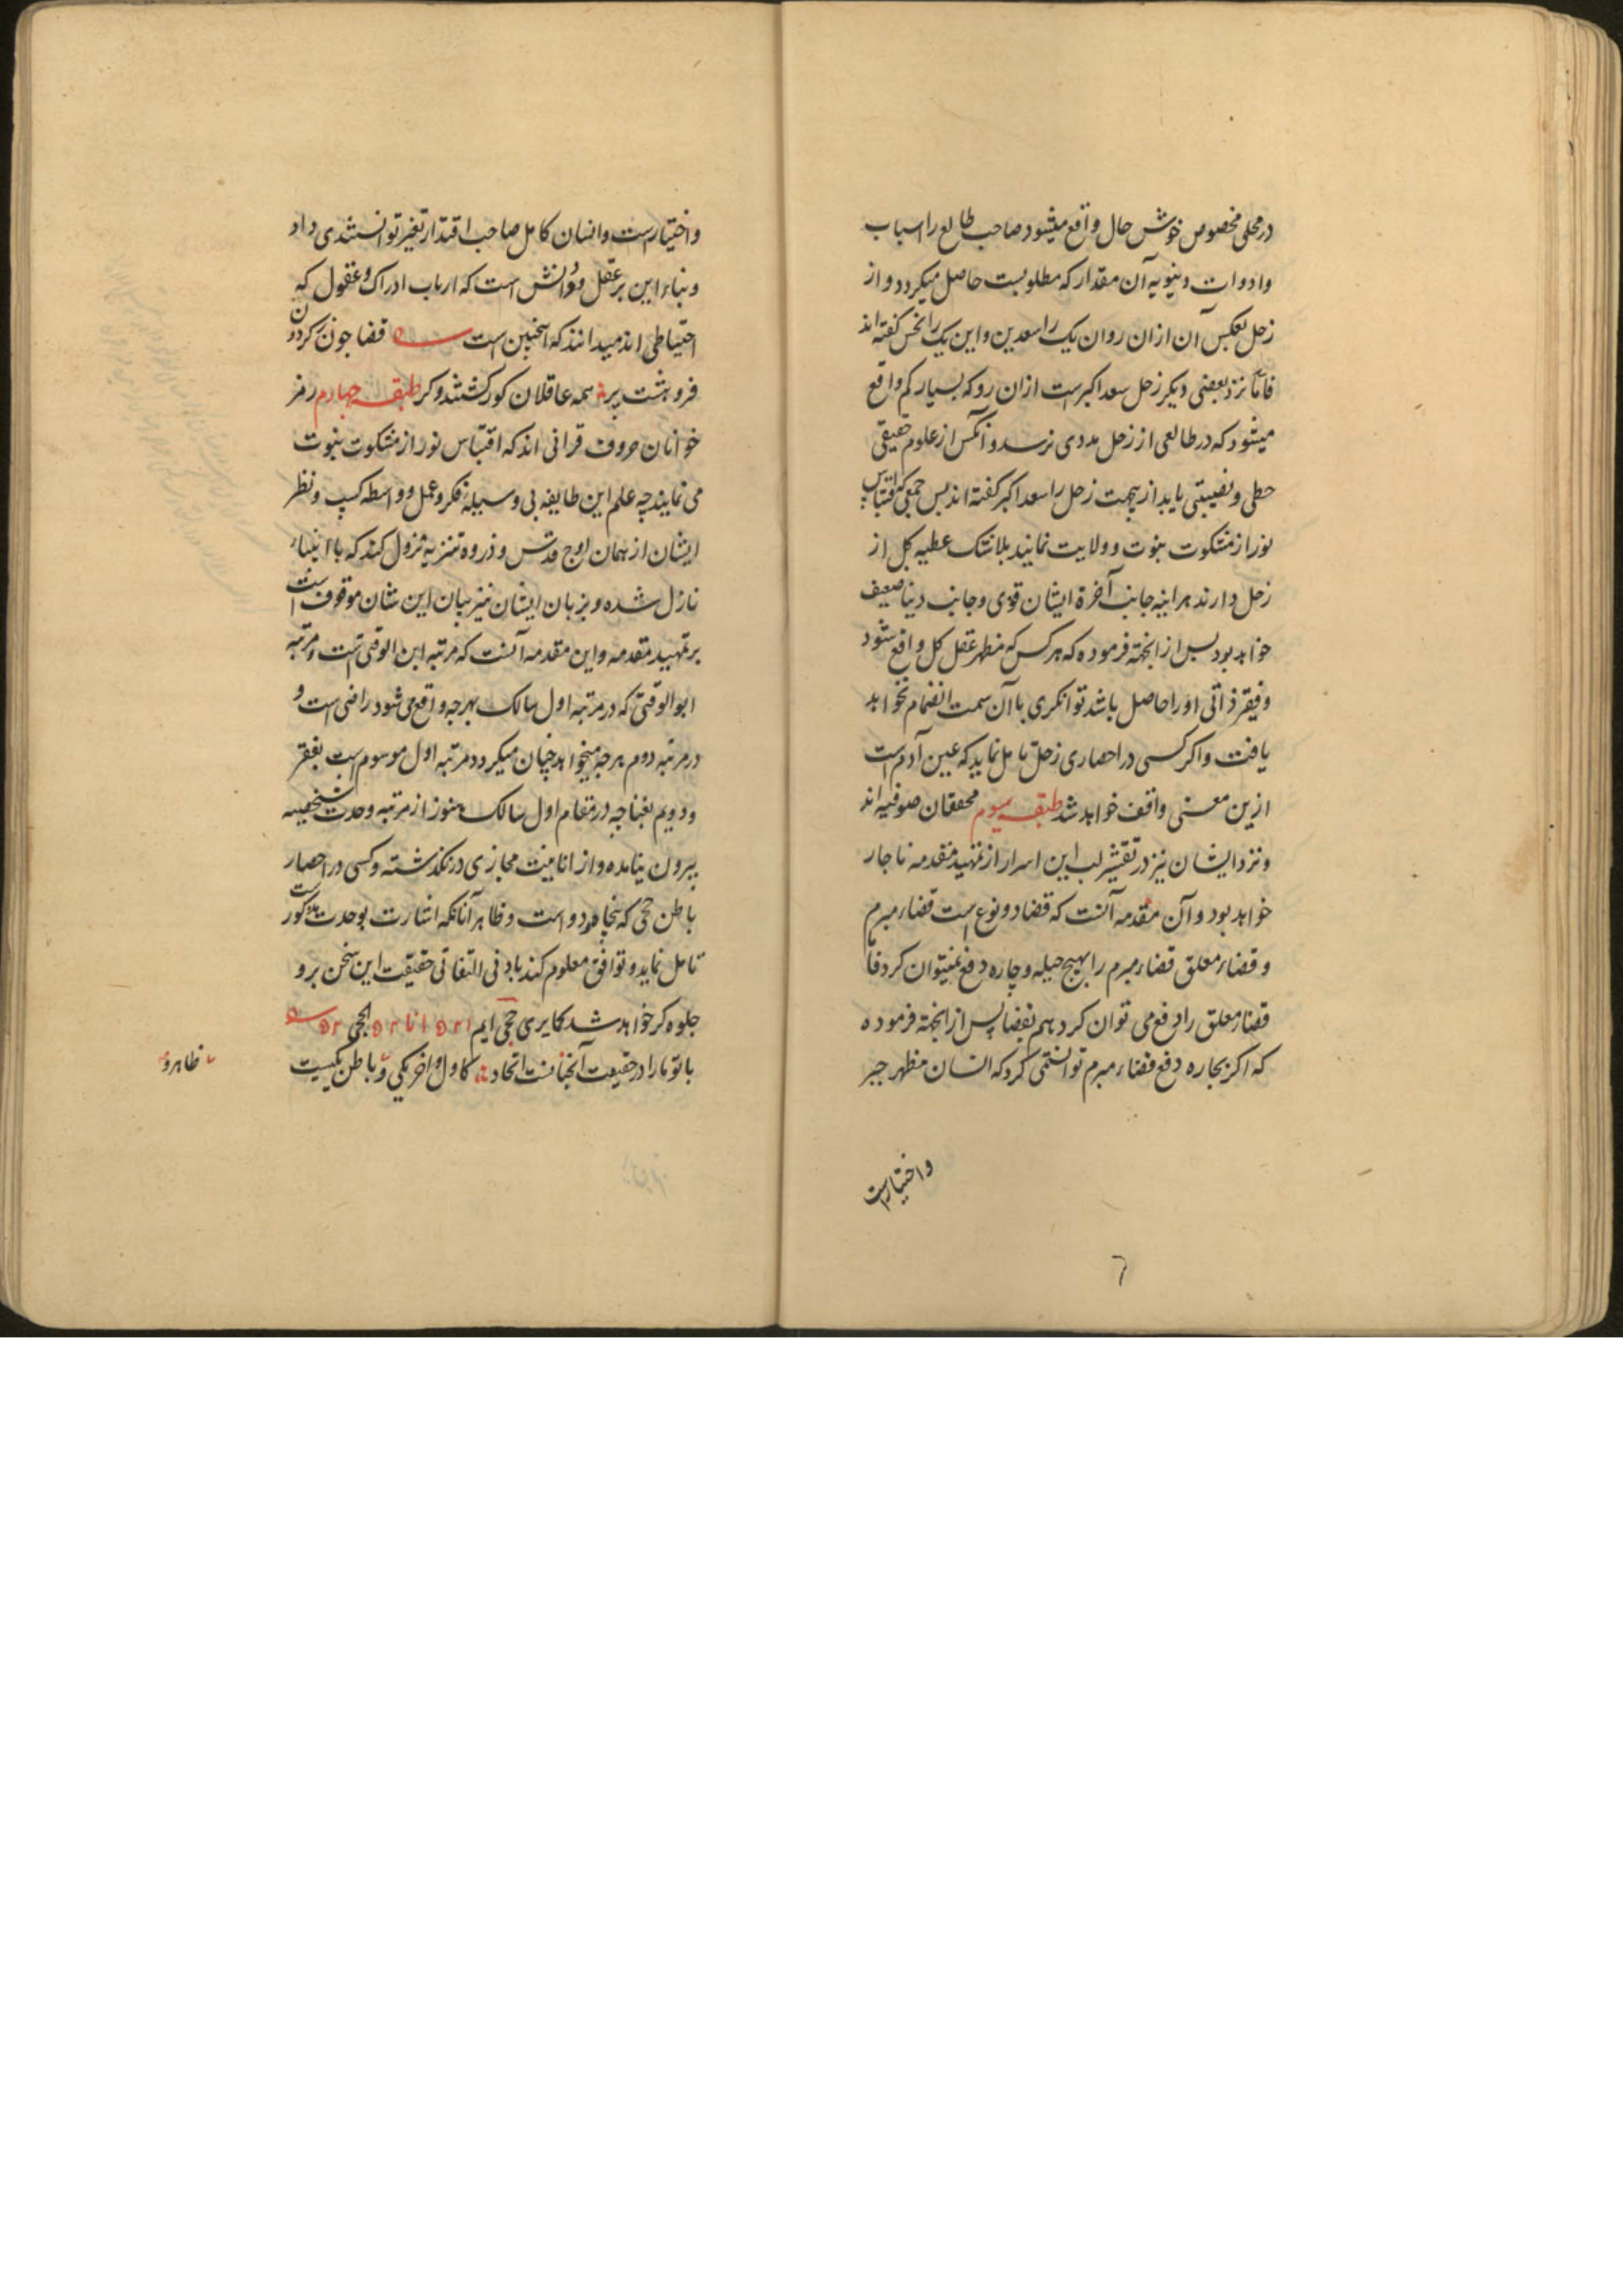 در محلی مخصوص خوش حال واقع میشود صاحب طالع را اسباب
وادوات دنیویه آن مقدار که مطلوبست حاصل میکردد و از
زحل بعکس آن ازان روان یک را سعدین و این یک را نحس کفته اند
فاما نزد بعضی دیکر زحل سعد اکبرست ازان رو که بسیار کم واقع
میشود که در طالعی از زحل مددی نرسد و آنکس از علوم حقیقی
حظی و نصیبتی یابد ازیجهت زحل را سعد اکبر کفته اند بس جمعی که اقتباس
نور از مشکوت نبوت و ولایت نمایند بلاشک عطیه کل از
زحل دارند هراینه جانب آخرة ایشان قوی و جانب دنیا ضعیف
خواهد بود بس از انجهته فرموده که هرکس که مظهر عقل کل واقع شود
و فیقر ذاتی اورا حاصل باشد توانکری با آن سمت انضمام نخواهد
یافت واکر کسی در احصاری زحل تامل نماید که عین آدم است
ازین معنی واقف خواهد شد طبقه سیوم محققان صوفیه اند
و نزد ایشان نیز در تقشیر لب این اسرار از تمهید مقدمه ناجار
خواهد بود و آن مقدمه آنست که قضا دو نوع است قضاء مبرم
و قضاء معلق قضاء مبرم را بهیچ حیله و چاره دفع نمیتوان کرد فاما
قضاء معلق را دفع می توان کرد هم بقضا پس از انجهته فرموده
که اکر بچاره دفع قضاء مبرم توانستمی کرد که انسان مظهر جبر
واختیارست
٦
واختیارست وانسان کامل صاحب اقتدار تغیر توانستندی داد
و بناء این بر عقل و دانش است که ارباب ادراک و عقول که
احتیاطی اند میدانند که اینچنین است قضا جون زکردون
فروهشت پر همه عاقلان کور کشتند و کر طبقه چهارم رمز
خوانان حروف قرانی اند که اقتباس نور از مشکوت نبوت
می نمایند چه علم این طایفه بی وسیلهٔ فکر و عمل و واسطه کسب و نظر
ایشان از همان اوج قدس و ذروه تنزیه نزول کند که با انبیاء
نازل شده و بزبان ایشان نیز بیان این شان موقوف است
بر تمهید مقدمه و این مقدمه آنست که مرتبه ابن الوقتی است و مرتبه
ابو الوقتی که در مرتبه اول سالک بهرجه واقع می شود راضی است و
در مرتبه دوم هرجه میخواهد چنان میکردد مرتبه اول موسوم است بفقر
و دویم بغنا چه در مقام اول سالک هنوز از مرتبه وحدت شخصیه
بیرون نیامده و از انانیت مجازی در نکذشته و کسی در احصار
باطن حی که پنجاه و دو است و ظاهر آنانکه اشارت بوحدت مذکورست
تامل نماید و توافق معلوم کند بادنی التفاتی حقیقت این سخن برو
جلوه کر خواهد شد کمایری حی ایم انا الحی
با تو ما را در حقیقت آنجنانست اتحاد کاول و اخر یکی و باطن یکیست
ظاهرو